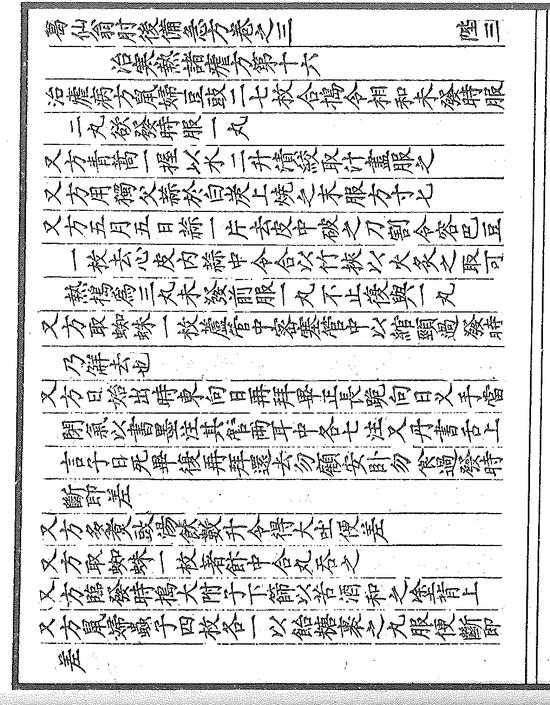 葛仙翁肘後備急方卷之三　陸三
治寒熱諸瘧方第十六
治瘧病方鼠婦豆豉二七枚合搗令相和未發時服
二丸欲發時服一丸
又方青蒿一握以水二升漬絞取汁盡服之
又方用獨父蒜於白炭上燒之末服方寸匕
又方五月五日蒜一片去皮中破之刀割令容巴豆
一枚去心皮內蒜中令合以竹挾以火炙之取可
熱搗為三丸未發前服一丸不止復與一丸
又方取蜘蛛一枚蘆管中密塞管中以綰頸過發時
乃解去也
又方日始出時東向日再拜畢正長跪向日叉手當
閉氣以書墨注其管兩耳中各七注又丹書舌上
言子日死畢復再拜還去勿顧安臥勿食過發時
斷即差
又方多煮豉湯飲數升令得大吐便差
又方取蜘蛛一枚著飯中合丸吞之
又方臨發時搗大附子下篩以苦酒和之塗背上
又方鼠婦蟲子四枚各一以飴糖裹之丸服便斷即
差